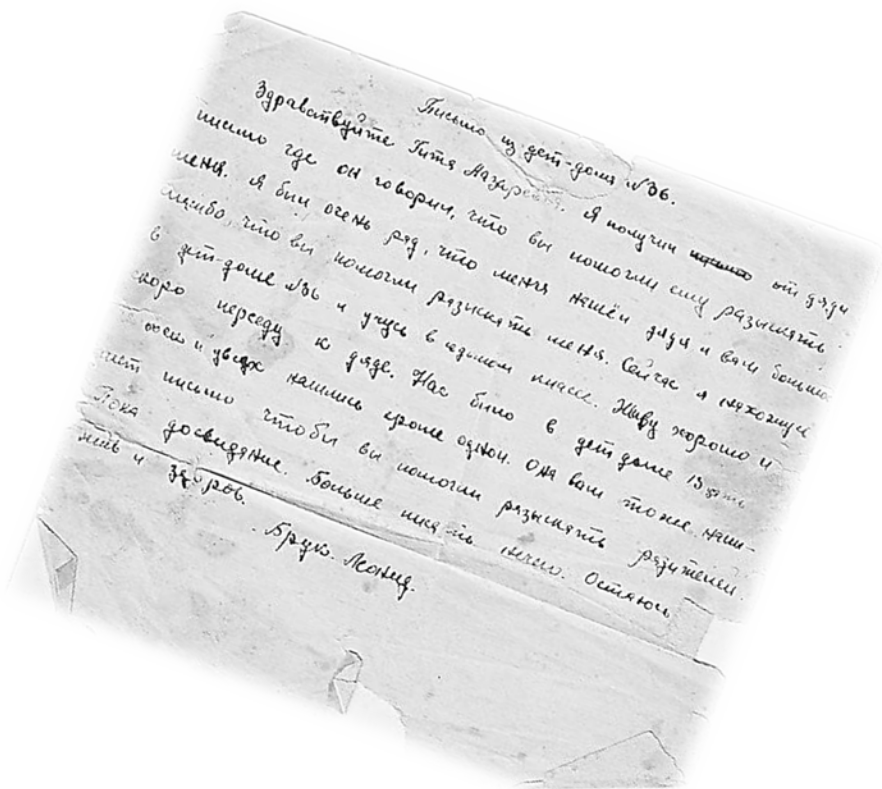 Письмо из дет-дома №36.
Здравствуйте Гитя Назаревна. Я получил письмо от дяди
письмо где он говорил, что вы помогли ему разыскать
меня. Я был очень рад, что меня нашёл дядя и вам большое
спасибо, что вы помогли разыскать меня. Сейчас я нахожусь
в дет-доме №36 и учусь в седьмом классе. Живу хорошо и
скоро перееду к дяде. Нас было в дет доме 13
и у всех нашлись кроме одной. Она вам тоже напи-
шет письмо чтобы вы помогли разыскать родителей.
Пока досвидание. Больше писать нечего. Остаюсь
жив и здоров.
Брук. Леонид.